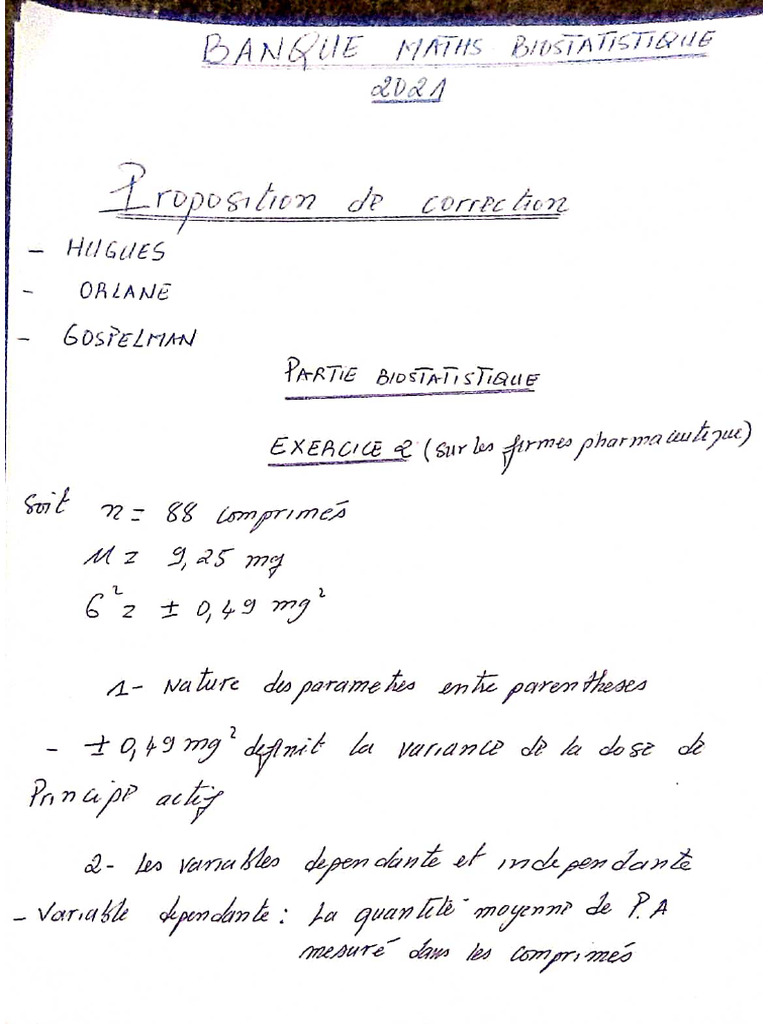 BANQUE MATHS BIOSTATISTIQUE
2021
Proposition de correction
- HUGUES
- ORLANE
- GOSPELMAN
PARTIE BIOSTATISTIQUE
EXERCICE 2 (sur les firmes pharmaceutique)
Soit n = 88 comprimés
M = 9,25 mg
б² = ± 0,49 mg²
1- Nature des parametres entre parentheses
- ± 0,49 mg² definit la variance de la dose de
Principe actif
2- Les variables dependante et independante
- Variable dependante : La quantité moyenne de P.A
mesuré dans les comprimés